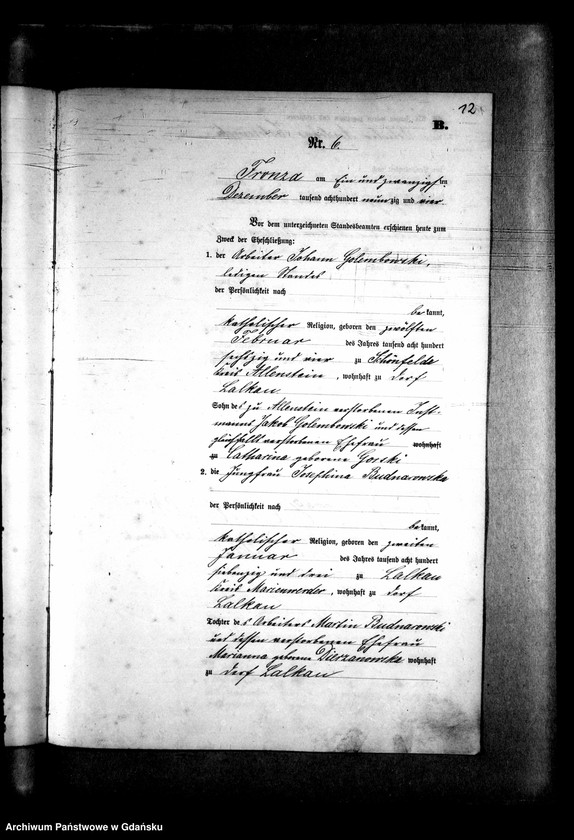 12
B.
Nr. 6
Fronza am Ein und zwanzigsten
Dezember tausend achthundert neunzig und vier
Vor dem unterzeichneten Standesbeamten erschienen heute zum
Zweck der Eheschließung:
1. der Arbeiter Johann Golembowski,
ledigen Standes
der Persönlichkeit nach
bekannt,
katholischer Religion, geboren den zwölften
Februar des Jahres tausend acht hundert
sechszig und vier zu Schönfelde
Kreis Allenstein, wohnhaft zu Dorf
Lalkau
Sohn des zu Allenstein verstorbenen Inst-
manns Jakob Golembowski und dessen
gleichfalls verstorbenen Ehefrau wohnhaft
zu Catharina geborene Gorski
2. die Jungfrau Josephina Budnarowska
der Persönlichkeit nach
bekannt,
katholischer Religion, geboren den zweiten
Januar des Jahres tausend acht hundert
siebenzig und drei zu Lalkau
Kreis Marienwerder, wohnhaft zu Dorf
Lalkau
Tochter des Arbeiters Martin Budnarowski
und dessen verstorbenen Ehefrau
Marianna geborene wohnhaft
zu Dorf Lalkau
Archiwum Państwowe w Gdańsku